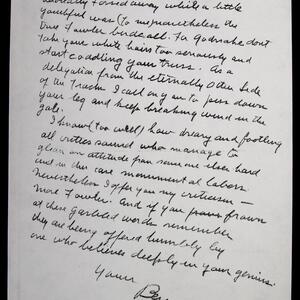 forced away while a little
youthful was (to me) nonetheless the
true Fowler birdcall. For Godsake dont
take your white hairs too seriously and
start coddling your truss. As a
delegation from the eternally Other Side
of the Tracks I call on you to piss down
your leg and keep breaking wind in the
gale.
I know (too well) how dreary and footling
all critics sound who manage to
glean an attitude from someone else's hard
and in this case monumental labors.
Nevertheless I offer you my criticism —
more Fowler. And if you frown
at these garbled words remember
they are being offered humbly by
one who believes deeply in your genius.
Yours
Ben